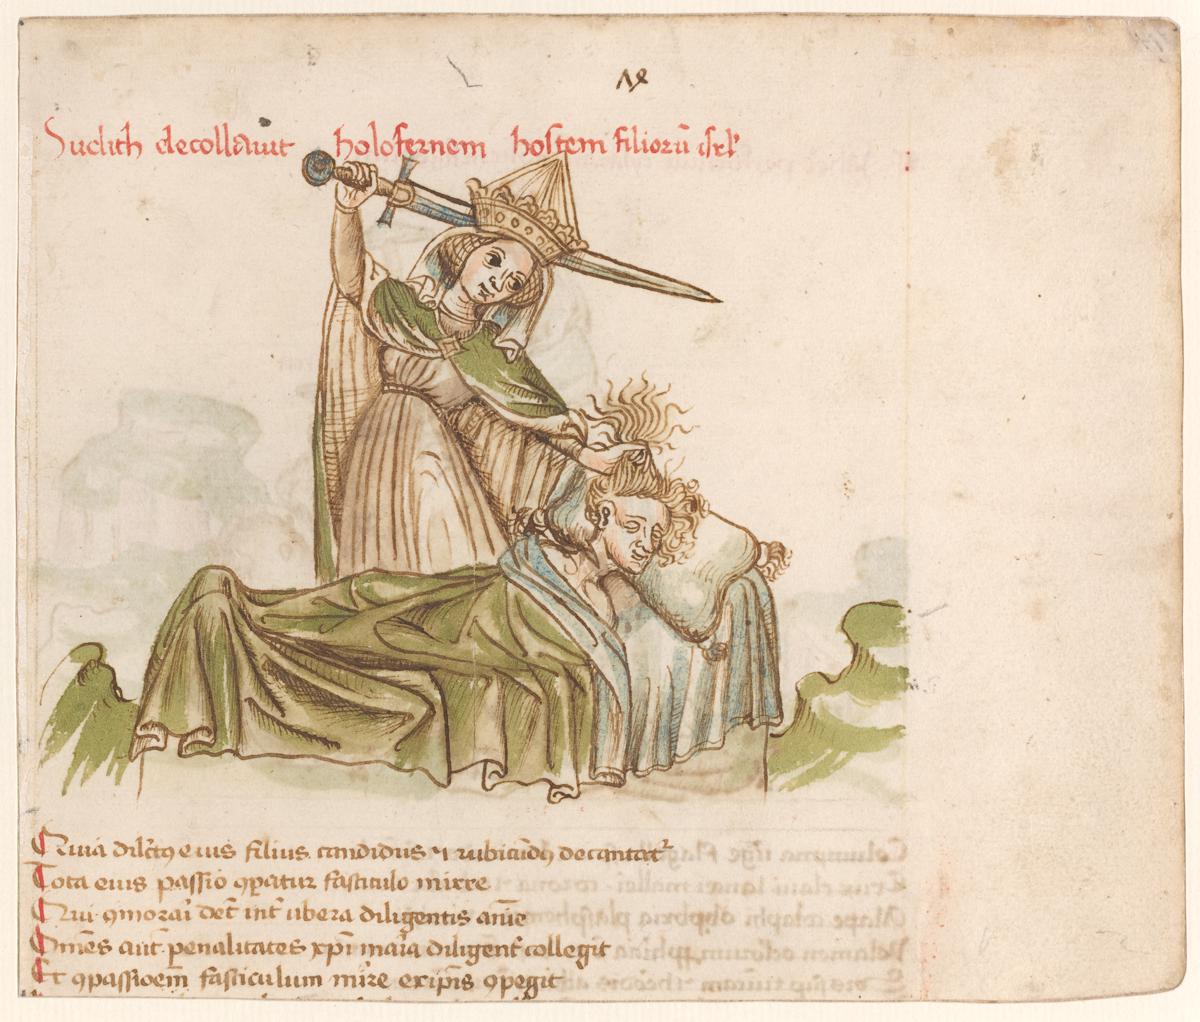 Judith decollavit holofernem hostem filiorū isrl'
Quia dilct9 eius filius candidus ⁊ rubicūd9 decantatʳ
Tota eius passio ꝯparatur fasciculo mirre
Qui ꝯmorari det int ubera diligentis aīe
Omēs aut penalitates xp̄i maria diligent collegit
Et ꝯpassiōem fasciculum mirre ex ip̄is ꝯpegit